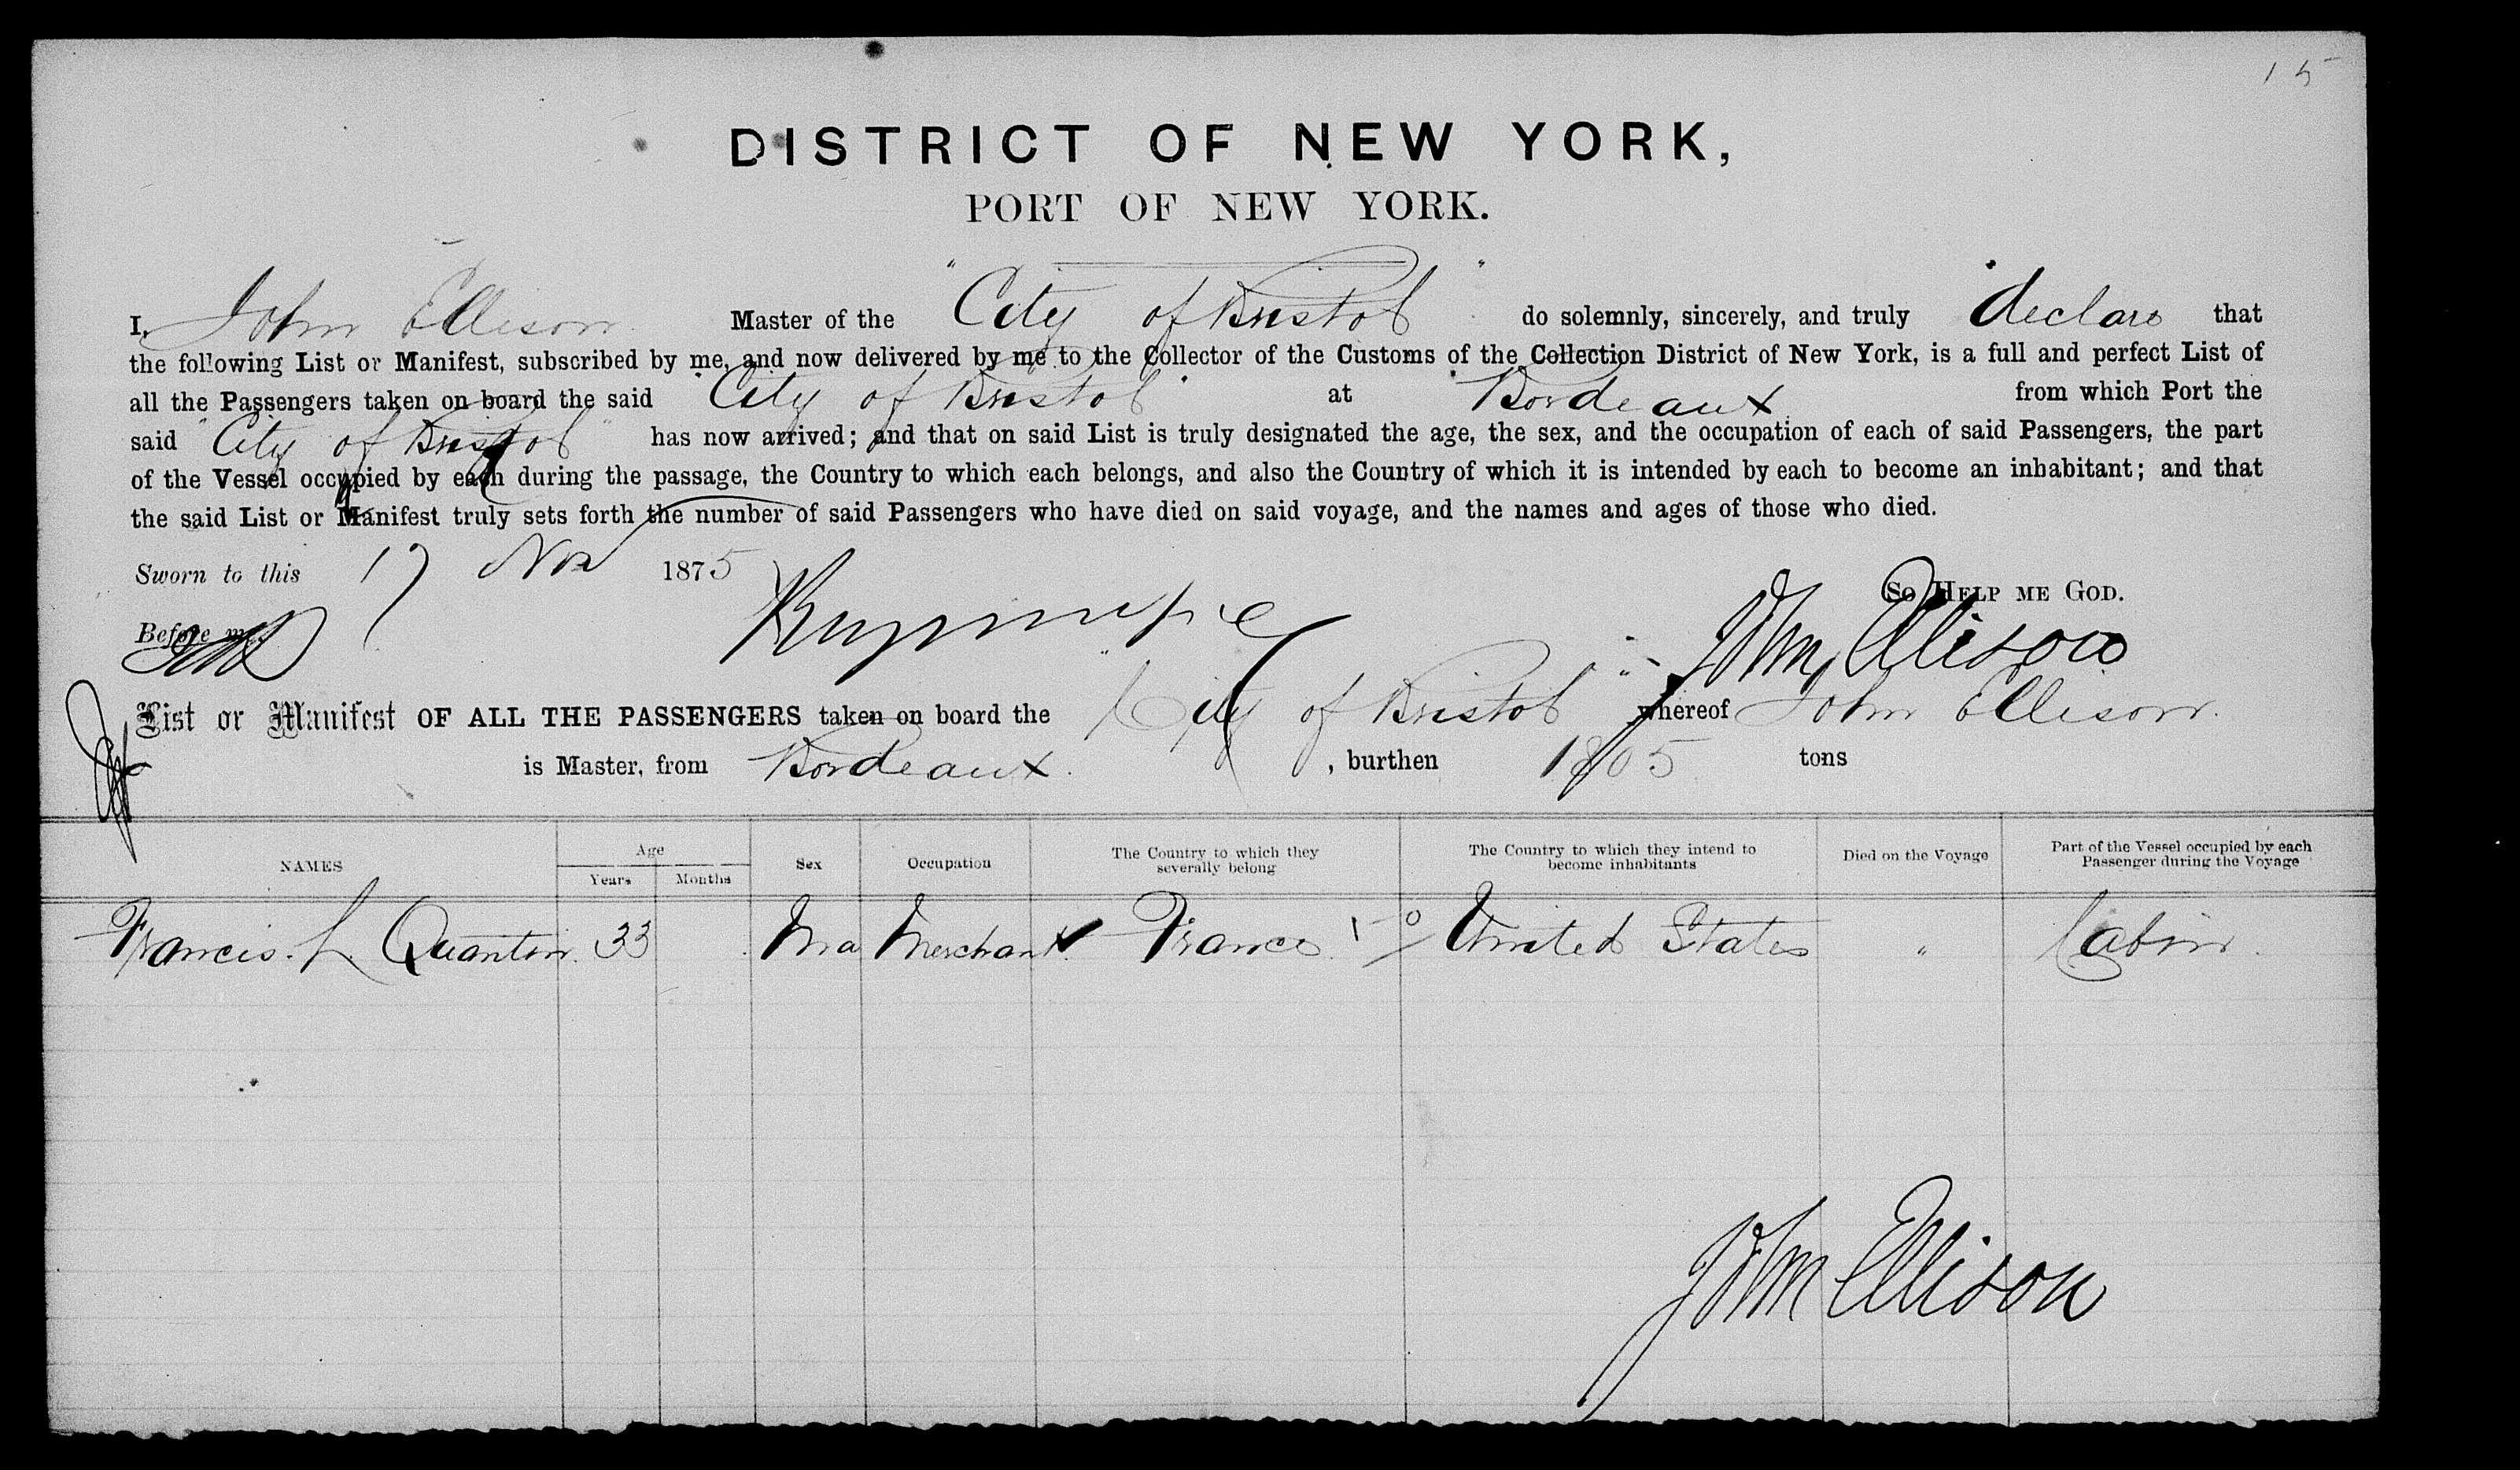 15
DISTRICT OF NEW YORK,
PORT OF NEW YORK.
I, John Ellison Master of the "City of Bristol" do solemnly, sincerely, and truly declare that
the following List or Manifest, subscribed by me, and now delivered by me to the Collector of the Customs of the Collection District of New York, is a full and perfect List of
all the Passengers taken on board the said "City of Bristol" at Bordeaux from which Port the
said "City of Bristol" has now arrived; and that on said List is truly designated the age, the sex, and the occupation of each of said Passengers, the part
of the Vessel occupied by each during the passage, the Country to which each belongs, and also the Country of which it is intended by each to become an inhabitant; and that
the said List or Manifest truly sets forth the number of said Passengers who have died on said voyage, and the names and ages of those who died.
Sworn to this 17 Nov 1875
So Help me God.
Before me,
John Ellison
List or Manifest OF ALL THE PASSENGERS taken on board the "City of Bristol" whereof John Ellison
is Master, from Bordeaux , burthen 1805 tons
NAMES Age Years Months Sex Occupation The Country to which they severally belong The Country to which they intend to become inhabitants Died on the Voyage Part of the Vessel occupied by each Passenger during the Voyage
Francis. L. Quantin. 33 Ma Merchant. France. United States " Cabin.
John Ellison